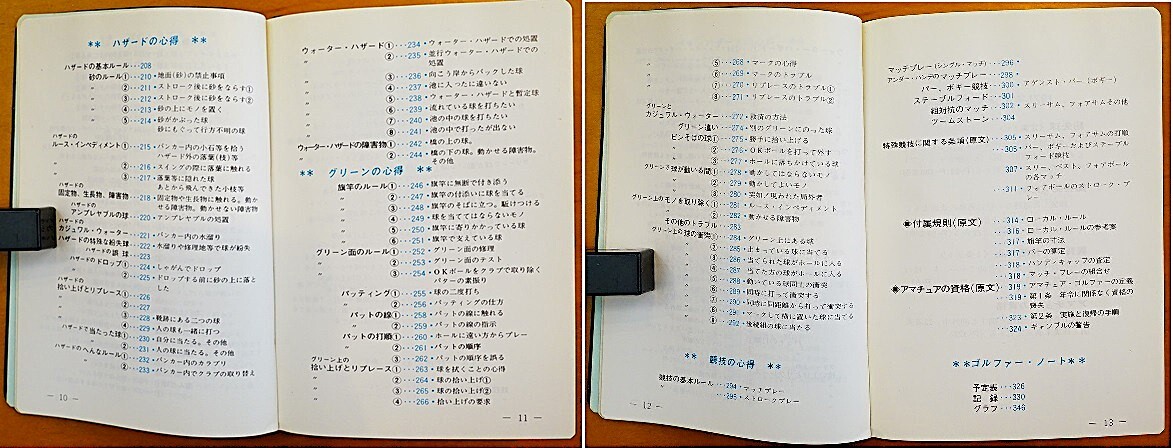 ** ハザードの心得 **
ハザードの基本ルール…208
砂のルール①…210・地面(砂)の禁止事項
〃 ②…211・ストローク後に砂をならす①
〃 ③…212・ストローク後に砂をならす②
〃 ④…213・砂の上にモノを置く
〃 ⑤…214・砂がかぶった球
砂にもぐって行方不明の球
ハザードの
ルース・インペディメント①…215・バンカー内の小石等を拾う
ハザード外の落葉(枝)等
〃 ②…216・スイングの際に落葉に触れる
〃 ③…217・落葉等に隠れた球
あとから飛んできた小枝等
ハザードの
固定物、生長物、障害物…218・固定物や生長物に触れる。動か
せる障害物、動かせない障害物
ハザードの
アンプレヤブルの球…220・アンプレヤブルの処置
ハザードの
カジュワル・ウォーター…221・バンカー内の水溜り
ハザードの特殊な紛失球…222・水溜りや修理地等で球が紛失
ハザードの誤球…223
ハザードのドロップ①…224・しゃがんでドロップ
〃 ②…225・ドロップする前に砂の上に落と
した
ハザードの
拾い上げとリプレース①…226
〃 ②…227
〃 ③…228・靴跡にある二つの球
〃 ④…229・人の球も一緒に打つ
ハザードで当たった球①…230・自分に当たる。その他
〃 ②…231・人の球に当たる。その他
ハザードのへんなルール①…232・バンカー内のカラブリ
〃 ②…233・バンカー内でクラブの取り替え
— 10 —
ウォーター・ハザード①…234・ウォーター・ハザードでの処置
〃 ②…235・並行ウォーター・ハザードでの
処置
〃 ③…236・向こう岸からバックした球
〃 ④…237・池に入ったに違いない
〃 ⑤…238・ウォーター・ハザードと暫定球
〃 ⑥…239・流れている球を打ちたい
〃 ⑦…240・池の中の球を打ちたい
〃 ⑧…241・池の中で打ったが出ない
ウォーター・ハザードの障害物①…242・橋の上の球。
〃 ②…244・橋の下の球。動かせる障害物。
その他
** グリーンの心得 **
旗竿のルール①…246・旗竿に無断で付き添う
〃 ②…247・旗竿の付添いに球を当てる
〃 ③…248・旗竿のそばに立つ。駆けつける
〃 ④…249・球を当ててはならないモノ
〃 ⑤…250・旗竿に寄りかかっている球
〃 ⑥…251・旗竿で支えている球
グリーン面のルール①…252・グリーン面の修理
〃 ②…253・グリーン面のテスト
〃 ③…254・OKボールをクラブで取り除く
パターの素振り
パッティング①…255・球の二度打ち
〃 ②…256・パッティングの仕方
パットの線①…258・パットの線に触れる
〃 ②…259・パットの線の指示
パットの打順①…260・ホールに遠い方からプレー
〃 ②…261・パットの順序
〃 ③…262・パットの順序を誤る
グリーン上の
拾い上げとリプレース①…263・球を拭くことの心得
〃 ②…264・球の拾い上げ①
〃 ③…265・球の拾い上げ②
〃 ④…266・拾い上げの要求
— 11 —
〃 ⑤…268・マークの心得
〃 ⑥…269・マークのトラブル
〃 ⑦…270・リプレースのトラブル①
〃 ⑧…271・リプレースのトラブル②
グリーンと
カジュワル・ウォーター…272・救済の方法
グリーン違い…274・別のグリーンにのった球
ピンそばの球①…275・勝手に拾い上げる
〃 ②…276・OKボールを打って外す
〃 ③…277・ホールに落ちかけている球
グリーンで球が動いる間①…278・動かしてはならないモノ
〃 ②…279・動かしてよいモノ
〃 ③…280・突如と現われた局外者
グリーン上のモノを取り除く①…281・ルース・インペディメント
〃 ②…282・動かせる障害物
その他のトラブル…283
グリーン上の球の衝突①…284・グリーン上にある球
〃 ②…285・止まっている球に当てる
〃 ③…286・当てられた球がホールに入る
〃 ④…287・当てた方の球がホールに入る
〃 ⑤…288・動いている球同士の衝突
〃 ⑥…289・同時に打って衝突する
〃 ⑦…290・同時に同距離から打って衝突する
〃 ⑧…291・マークして隣に置いた球に当てる
〃 ⑨…292・後続組の球に当たる
** 競技の心得 **
競技の基本ルール…294・マッチプレー
〃 …295・ストロークプレー
— 12 —
マッチプレー(シングル・マッチ)…296・
アンダー・ハンデのマッチプレー…298・
パー、ボギー競技…300・アゲンスト・パー(ボギー)
ステーブルフォード…301
組対抗のマッチ…302・スリーサム、フォアサムその他
ツームストーン…304
特殊競技に関する条項(原文)…305・スリーサム、フォアサムの打順
…305・パー、ボギーおよびステーブル
フォード競技
307・スリー、ベスト、フォアボール
の各マッチ
…311・フォアボールのストローク・プ
レー
◉付属規則(原文)…314・ローカル・ルール
…316・ローカル・ルールの参考案
…317・旗竿の寸法
…317・パーの算定
…318・ハンディキャップの査定
…318・マッチ・プレーの組合せ
◉アマチュアの資格(原文)…319・アマチュア・ゴルファーの定義
319・第1条 年令に関係なく資格の
喪失
…323・第2条 実施と復帰の手順
…324・ギャンブルの警告
**ゴルファー・ノート**
予定表…326
記録…330
グラフ…346
— 13 —